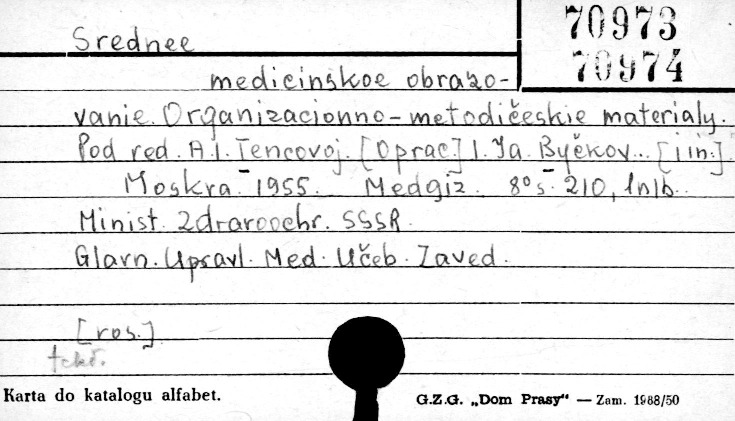 70973
70974
Srednee
medicinskoe obrazo-
vanie. Organizacionno-metodičeskie materialy.
Pod red. A.I. Tencovoj. [Oprac] I. Ja. Byčkov... [i in.]
Moskva 1955. Medgiz. 8° s. 210, 1nlb.
Minist. Zdravoochr. SSSR.
Glavn. Upravl. Med. Učeb. Zaved.
[ros.]
Karta do katalogu alfabet.
G.Z.G. „Dom Prasy" — Zam. 1988/50